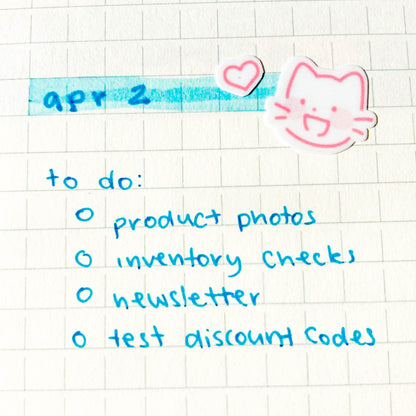 apr 2
to do:
o product photos
o inventory checks
o newsletter
o test discount codes